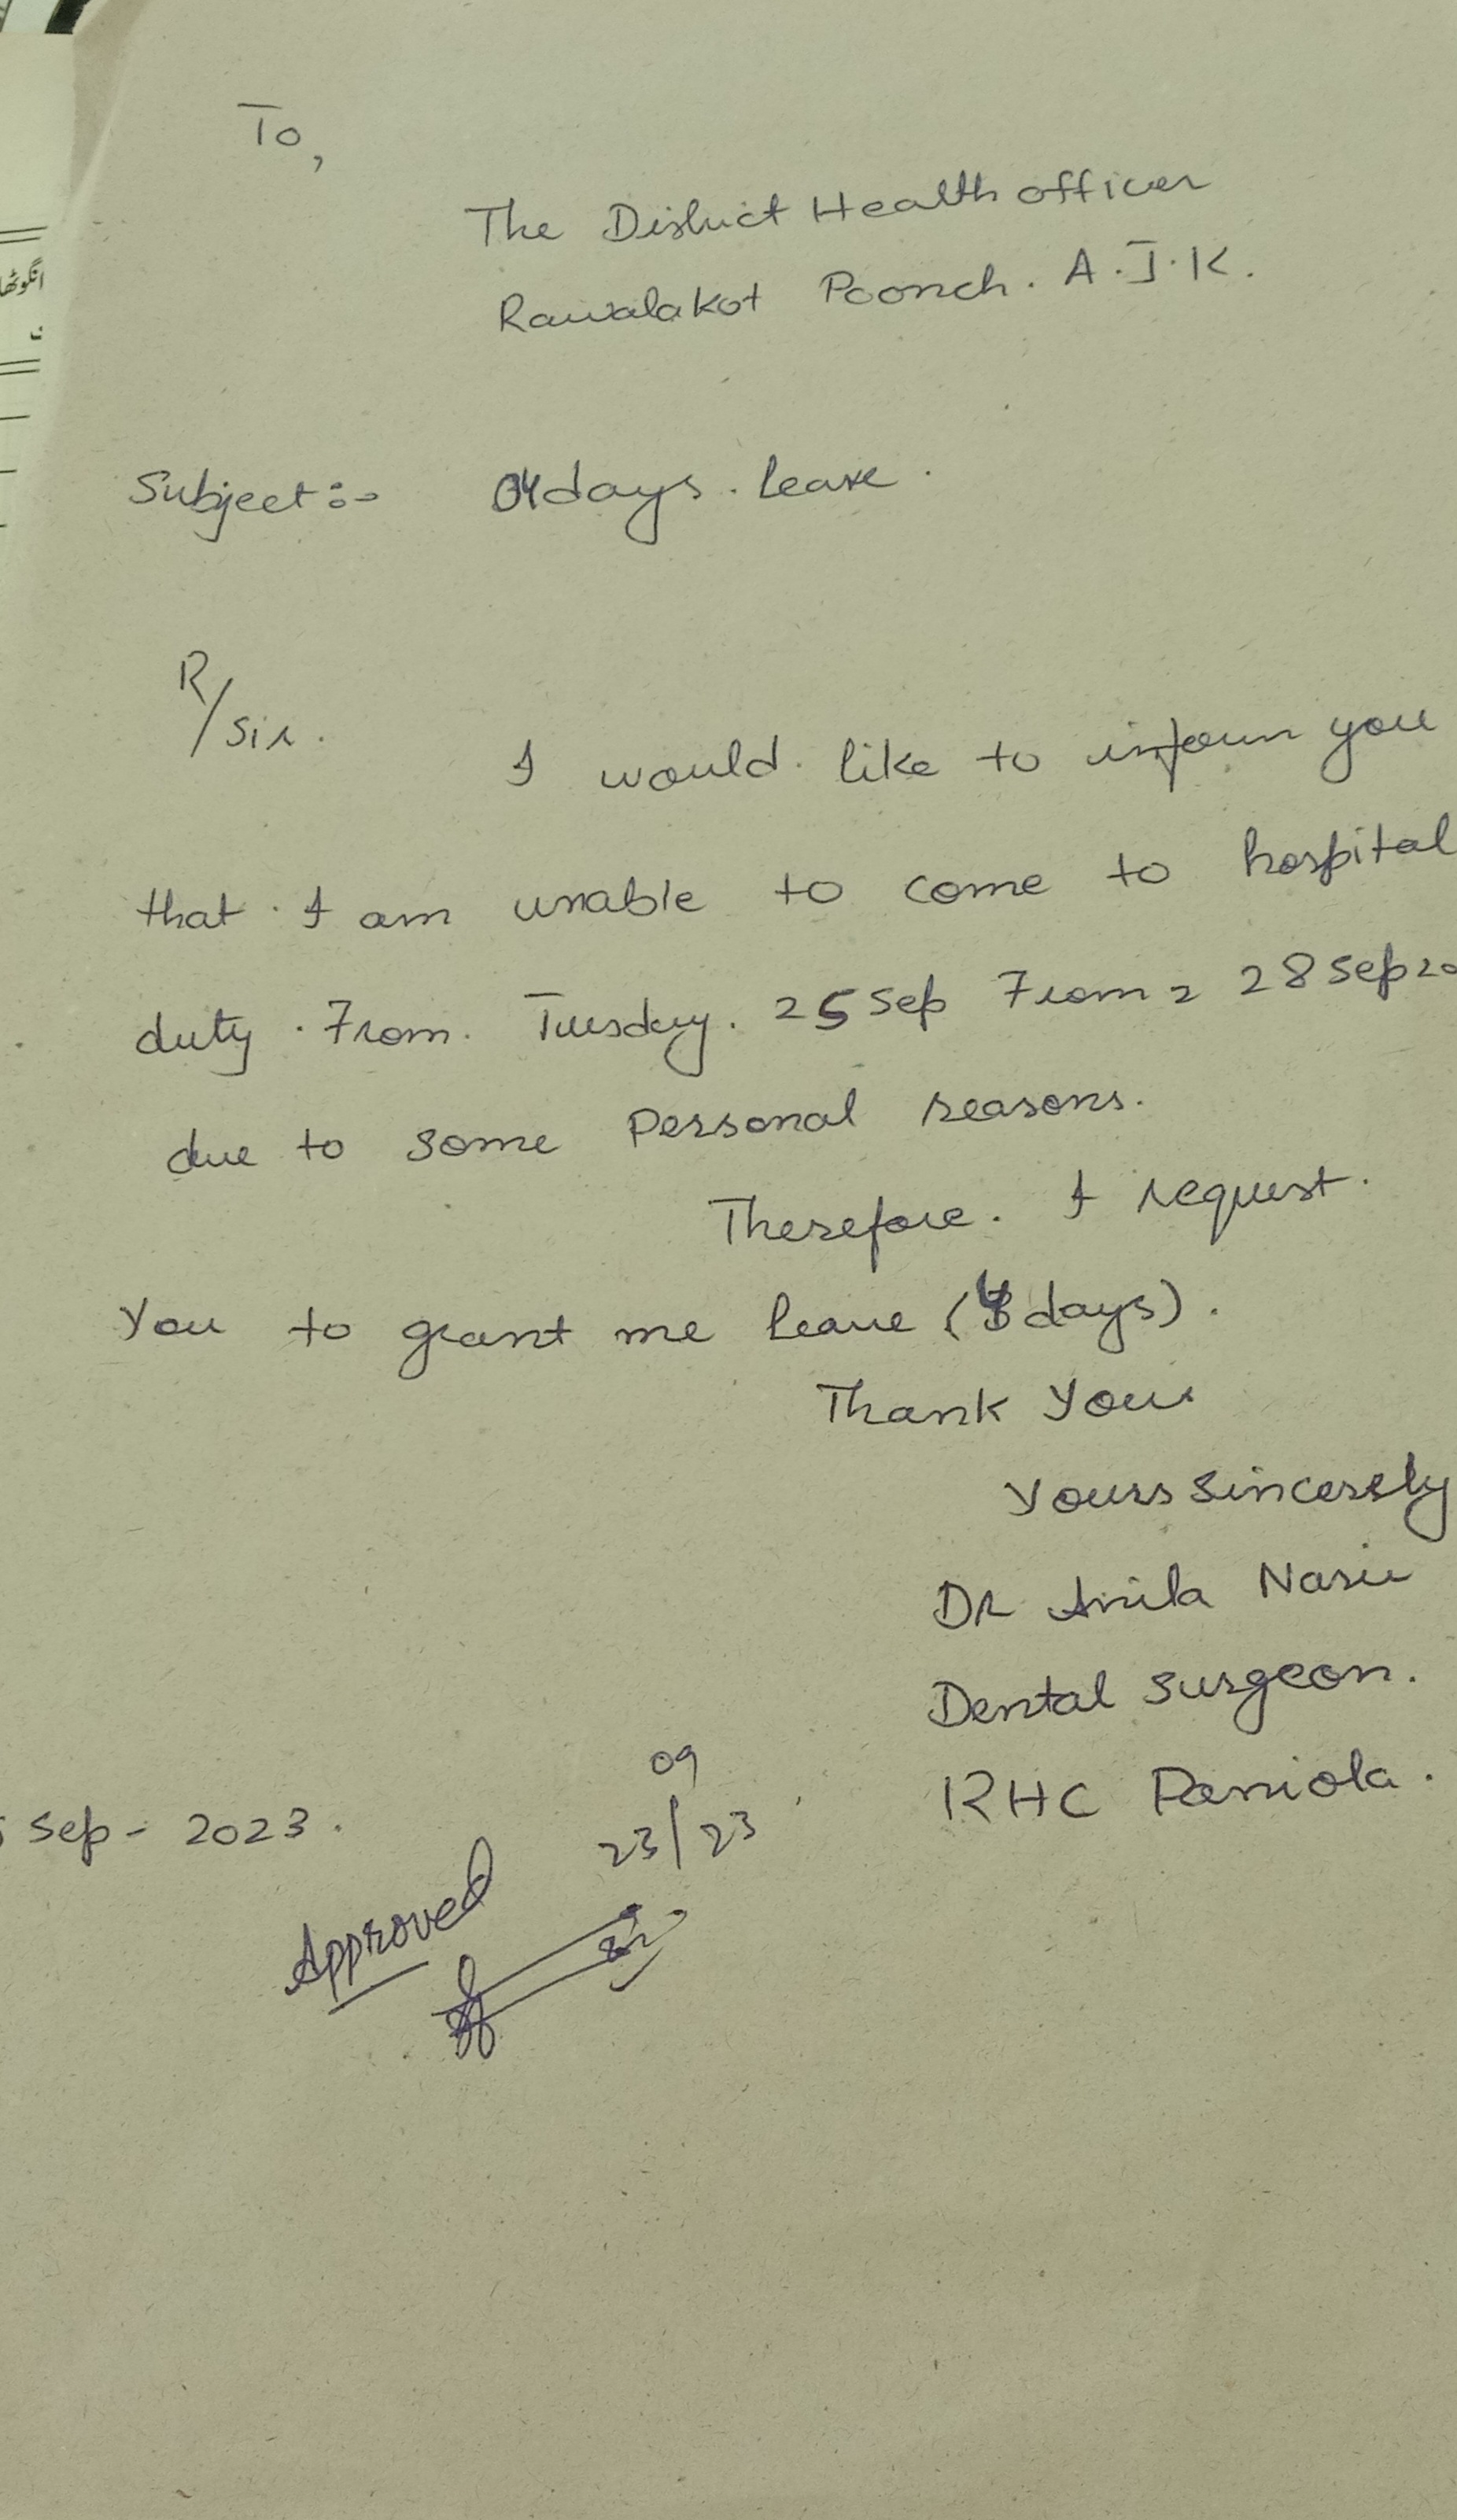 To,
The District Health officer
Rawalakot Poonch. A.J.K.
Subject:- 04days. leave.
R/Sir.
I would like to inform you
that I am unable to come to hospital
duty. From. Tuesday. 25 Sep From 28 Sep 20
due to some Personal reasons.
Therefore. I request.
You to grant me leave (4 days).
Thank You
Yours Sincerely
DR Anila Nasir
Dental Surgeon.
RHC Paniola.
Sep - 2023.
09
23/23
Approved
انگوٹھا